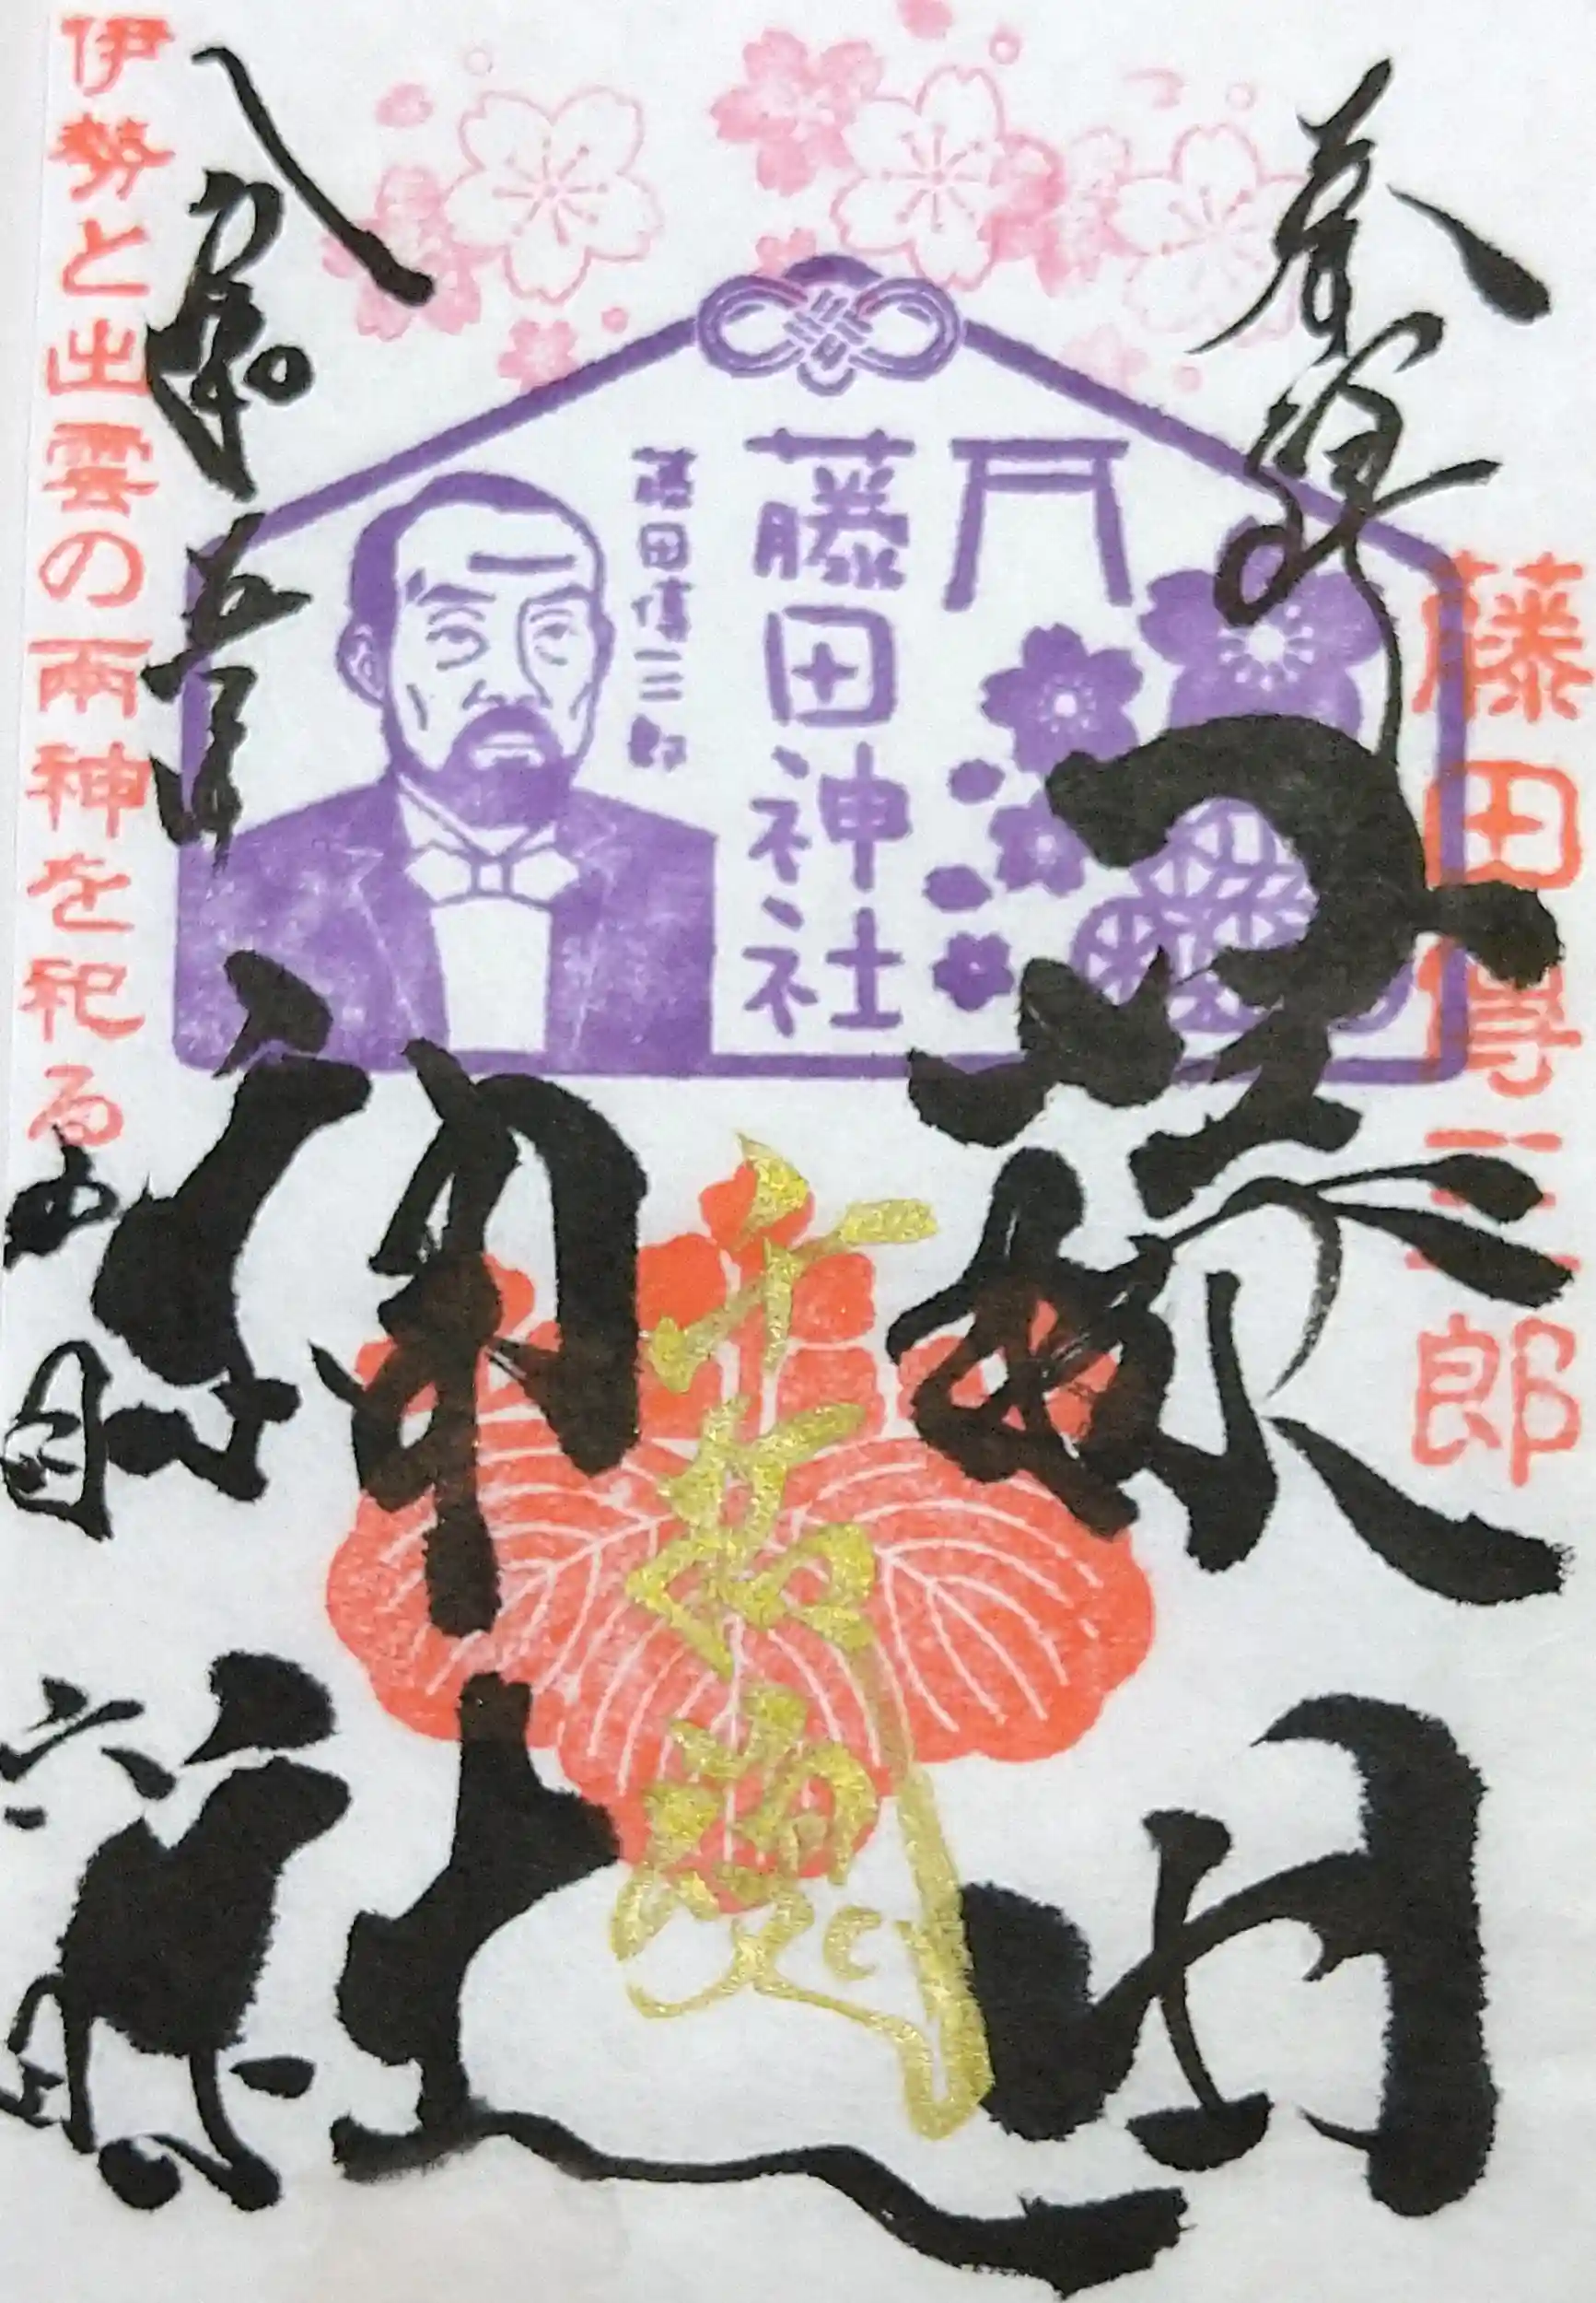 奉拝
藤田傳三郎
藤田
神社
藤田神社
藤田傳三郎
令和五年
四月
六日
伊勢と出雲の兩神を祀る